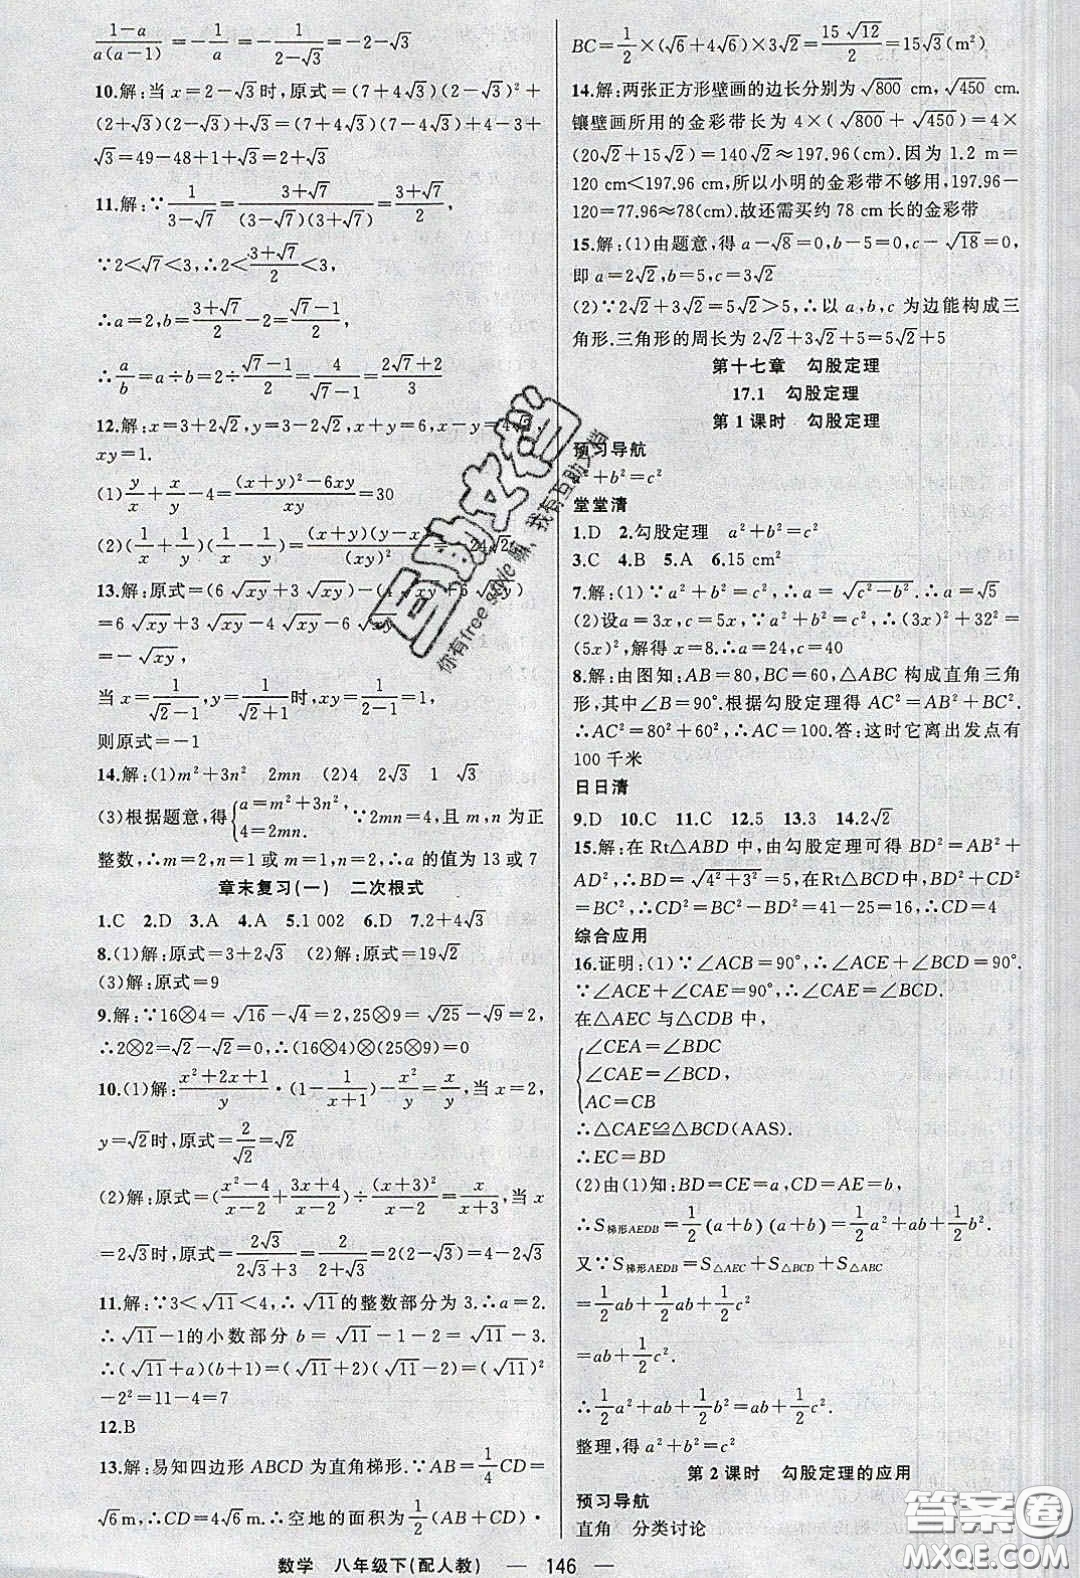 (1-a)/(a(a-1)) = -1/a = -1/(2-√3) = -2-√3
10.解:当x=2-√3时,原式=(7+4√3)(2-√3)²+
(2+√3)(2-√3)+√3=(7+4√3)(7-4√3)+4-3+
√3=49-48+1+√3=2+√3
11.解:∵1/(3-√7)=(3+√7)/((3-√7)(3+√7))=(3+√7)/2,
∵2<√7<3,∴2<(3+√7)/2<3,
∴a=2,b=(3+√7)/2-2=(√7-1)/2,
∴a/b=a÷b=2÷(√7-1)/2=4/(√7-1)=(2√7+2)/3
12.解:x=3+2√2,y=3-2√2,x+y=6,x-y=4√2
xy=1.
(1)y/x+x/y-4=((x+y)²-6xy)/xy=30
(2)(1/x+1/y)(1/x-1/y)=
13.解:原式=(6√xy+3√xy)-(4√xy+6√xy)
=6√xy+3√xy-4√xy-6√xy
=-√xy,
当x=1/(√2-1),y=1/(√2+1)时,xy=1/(2-1)=1,
则原式=-1
14.解:(1)m²+3n² 2mn (2)4 2√3 1 √3
(3)根据题意,得{a=m²+3n², 4=2mn. ∵2mn=4,且m,n为正
整数,∴m=2,n=1或m=1,n=2,∴a的值为13或7
章末复习(一) 二次根式
1.C 2.D 3.A 4.A 5.1 002 6.D 7.2+4√3
8.(1)解:原式=3+2√3 (2)解:原式=19√2
(3)解:原式=9
9.解:∵16⊗4=√16-√4=2,25⊗9=√25-√9=2,
∴2⊗2=√2-√2=0,∴(16⊗4)⊗(25⊗9)=0
10.(1)解:(x²+2x+1)/y·(1-1/(x+1))-x²/y=x/y,当x=2,
y=√2时,原式=2/√2=√2
(2)解:原式=((x²-4)/(x-2)+(3x+4)/(x-2))÷(x+3)²/(x-2)=x/(x+3),当x
=2√3时,原式=2√3/(2√3+3)=2/(2+√3)=2(2-√3)=4-2√3
11.解:∵3<√11<4,∴√11的整数部分为3.∴a=2.
∴√11-1的小数部分b=√11-1-2=√11-3.
∴(√11+a)(b+1)=(√11+2)(√11-2)=(√11)²
-2²=11-4=7
12.B
13.解:易知四边形ABCD为直角梯形.∵AB=1/4CD=
√6m,∴CD=4√6m.∴空地的面积为1/2(AB+CD)·
BC=1/2×(√6+4√6)×3√2=15√12/2=15√3(m²)
14.解:两张正方形壁画的边长分别为√800 cm,√450 cm.
镶壁画所用的金彩带长为4×(√800+√450)=4×
(20√2+15√2)=140√2≈197.96(cm).因为1.2 m=
120 cm<197.96 cm,所以小明的金彩带不够用,197.96-
120=77.96≈78(cm).故还需买约78 cm长的金彩带
15.解:(1)由题意,得a-√8=0,b-5=0,c-√18=0,
即a=2√2,b=5,c=3√2
(2)∵2√2+3√2=5√2>5,∴以a,b,c为边能构成三
角形.三角形的周长为2√2+3√2+5=5√2+5
第十七章 勾股定理
17.1 勾股定理
第1课时 勾股定理
预习导航
a²+b²=c²
堂堂清
1.D 2.勾股定理 a²+b²=c²
3.C 4.B 5.A 6.15 cm²
7.解:(1)∵a²+b²=c²,∴a=√(c²-b²).∴a=√5
(2)设a=3x,c=5x,∵a²+b²=c²,∴(3x)²+32²=
(5x)²,解得x=8.∴a=24,c=40
8.解:由图知:AB=80,BC=60,△ABC构成直角三角
形,其中∠B=90°.根据勾股定理得AC²=AB²+BC².
∴AC²=80²+60².∴AC=100.答:这时它离出发点有
100千米
日日清
9.D 10.C 11.C 12.5 13.3 14.2√2
15.解:在Rt△ABD中,由勾股定理可得BD²=AB²+
AD²,∴BD=√(4²+5²)=√41,在Rt△BCD中,BD²=
BC²+CD²,∴CD²=BD²-BC²=41-25=16,∴CD=4
综合应用
16.证明:(1)∵∠ACB=90°,∴∠ACE+∠BCD=90°.
∵∠ACE+∠CAE=90°,∴∠CAE=∠BCD.
在△AEC与△CDB中,
∠CEA=∠BDC
∠CAE=∠BCD,
AC=CB
∴△CAE≌△BCD(AAS).
∴EC=BD
(2)由(1)知:BD=CE=a,CD=AE=b,
∴S梯形AEDB=1/2(a+b)(a+b)=1/2a²+ab+1/2b².
又∵S梯形AEDB=S△AEC+S△BCD+S△ABC
=1/2ab+1/2ab+1/2c²
=ab+1/2c².
∴1/2a²+ab+1/2b²=ab+1/2c².
整理,得a²+b²=c²
第2课时 勾股定理的应用
预习导航
直角 分类讨论
数学 八年级下(配人教) — 146 —
互助文档
你有free style嘛,我有互助文档
答案圈
MXQE.COM